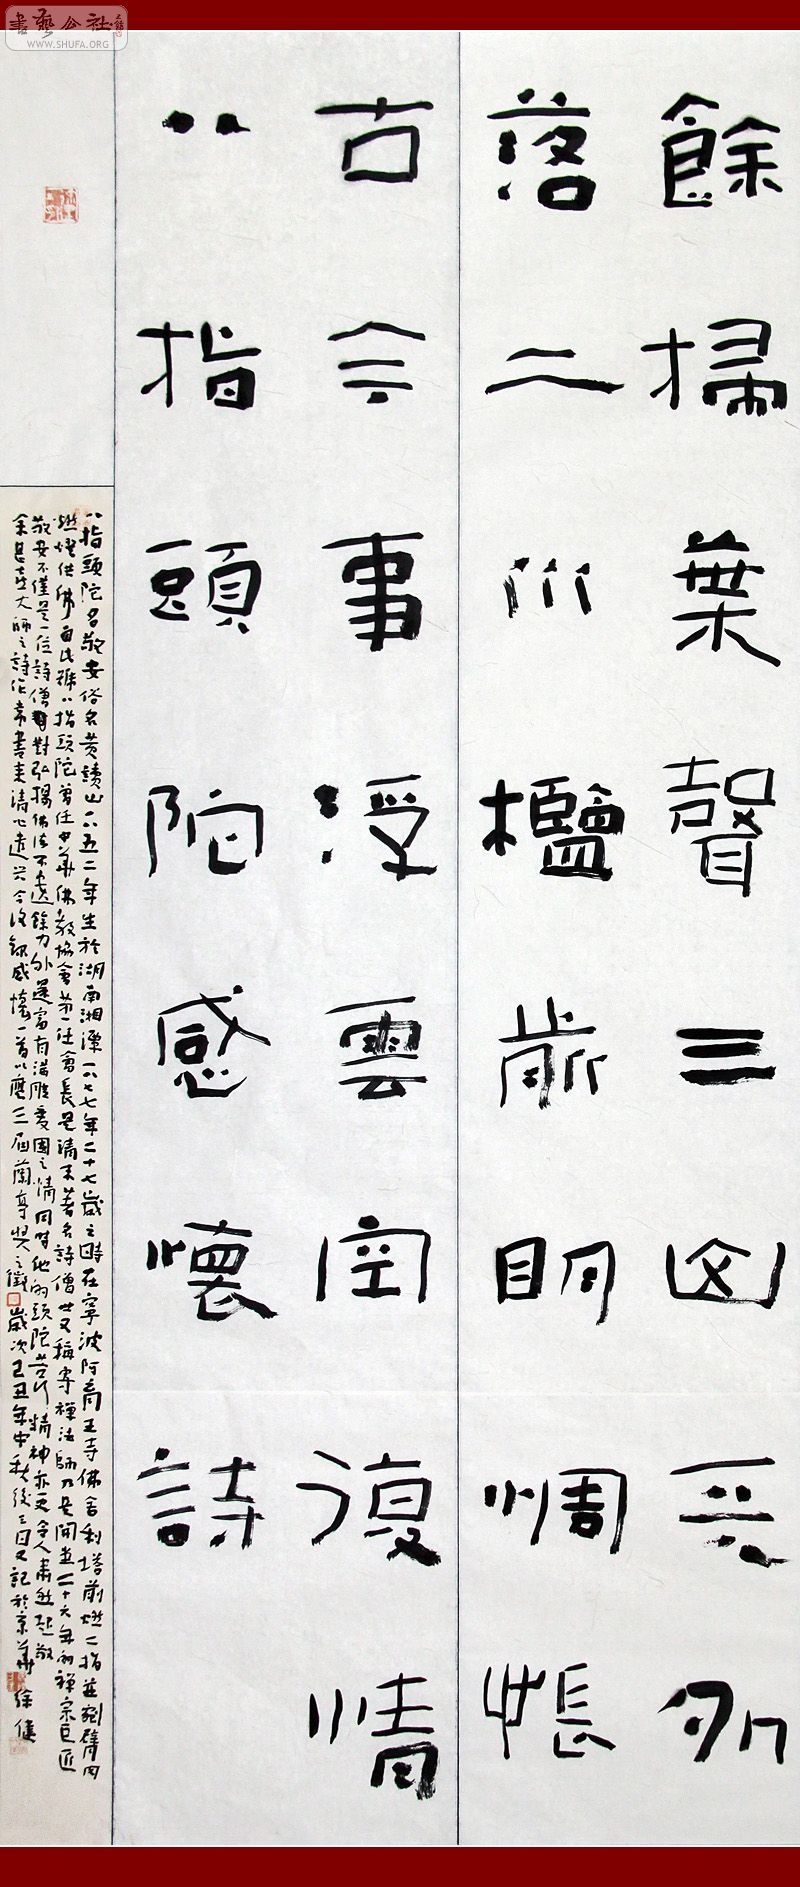 餘掃葉聲三山天外
落二水檻前明惆悵
古今事浮雲空復情
八指頭陀感懷詩
八指頭陀名敬安俗名黄讀山一八五二年生於湖南湘潭一八七七年二十七歲之時在寧波阿育王寺佛舍利塔前燃二指並剜臂肉
燃燈供佛自此號八指頭陀曾任中華佛教協會第一任會長是清末著名詩僧世又稱寄禪法師乃是開二十六年的禪宗巨匠
敬安不僅是一位詩僧對弘揚佛法不遺餘力外還富有滿腔愛國之情同時他的頭陀苦行精神亦更令人肅然起敬
余甚喜大師之詩作常書來清心遣兴今錄感懷一首以應三屆蘭亭奖之徵歲次己丑年中秋後三日又記於京華徐健
書藝公社
WWW.SHUFA.ORG